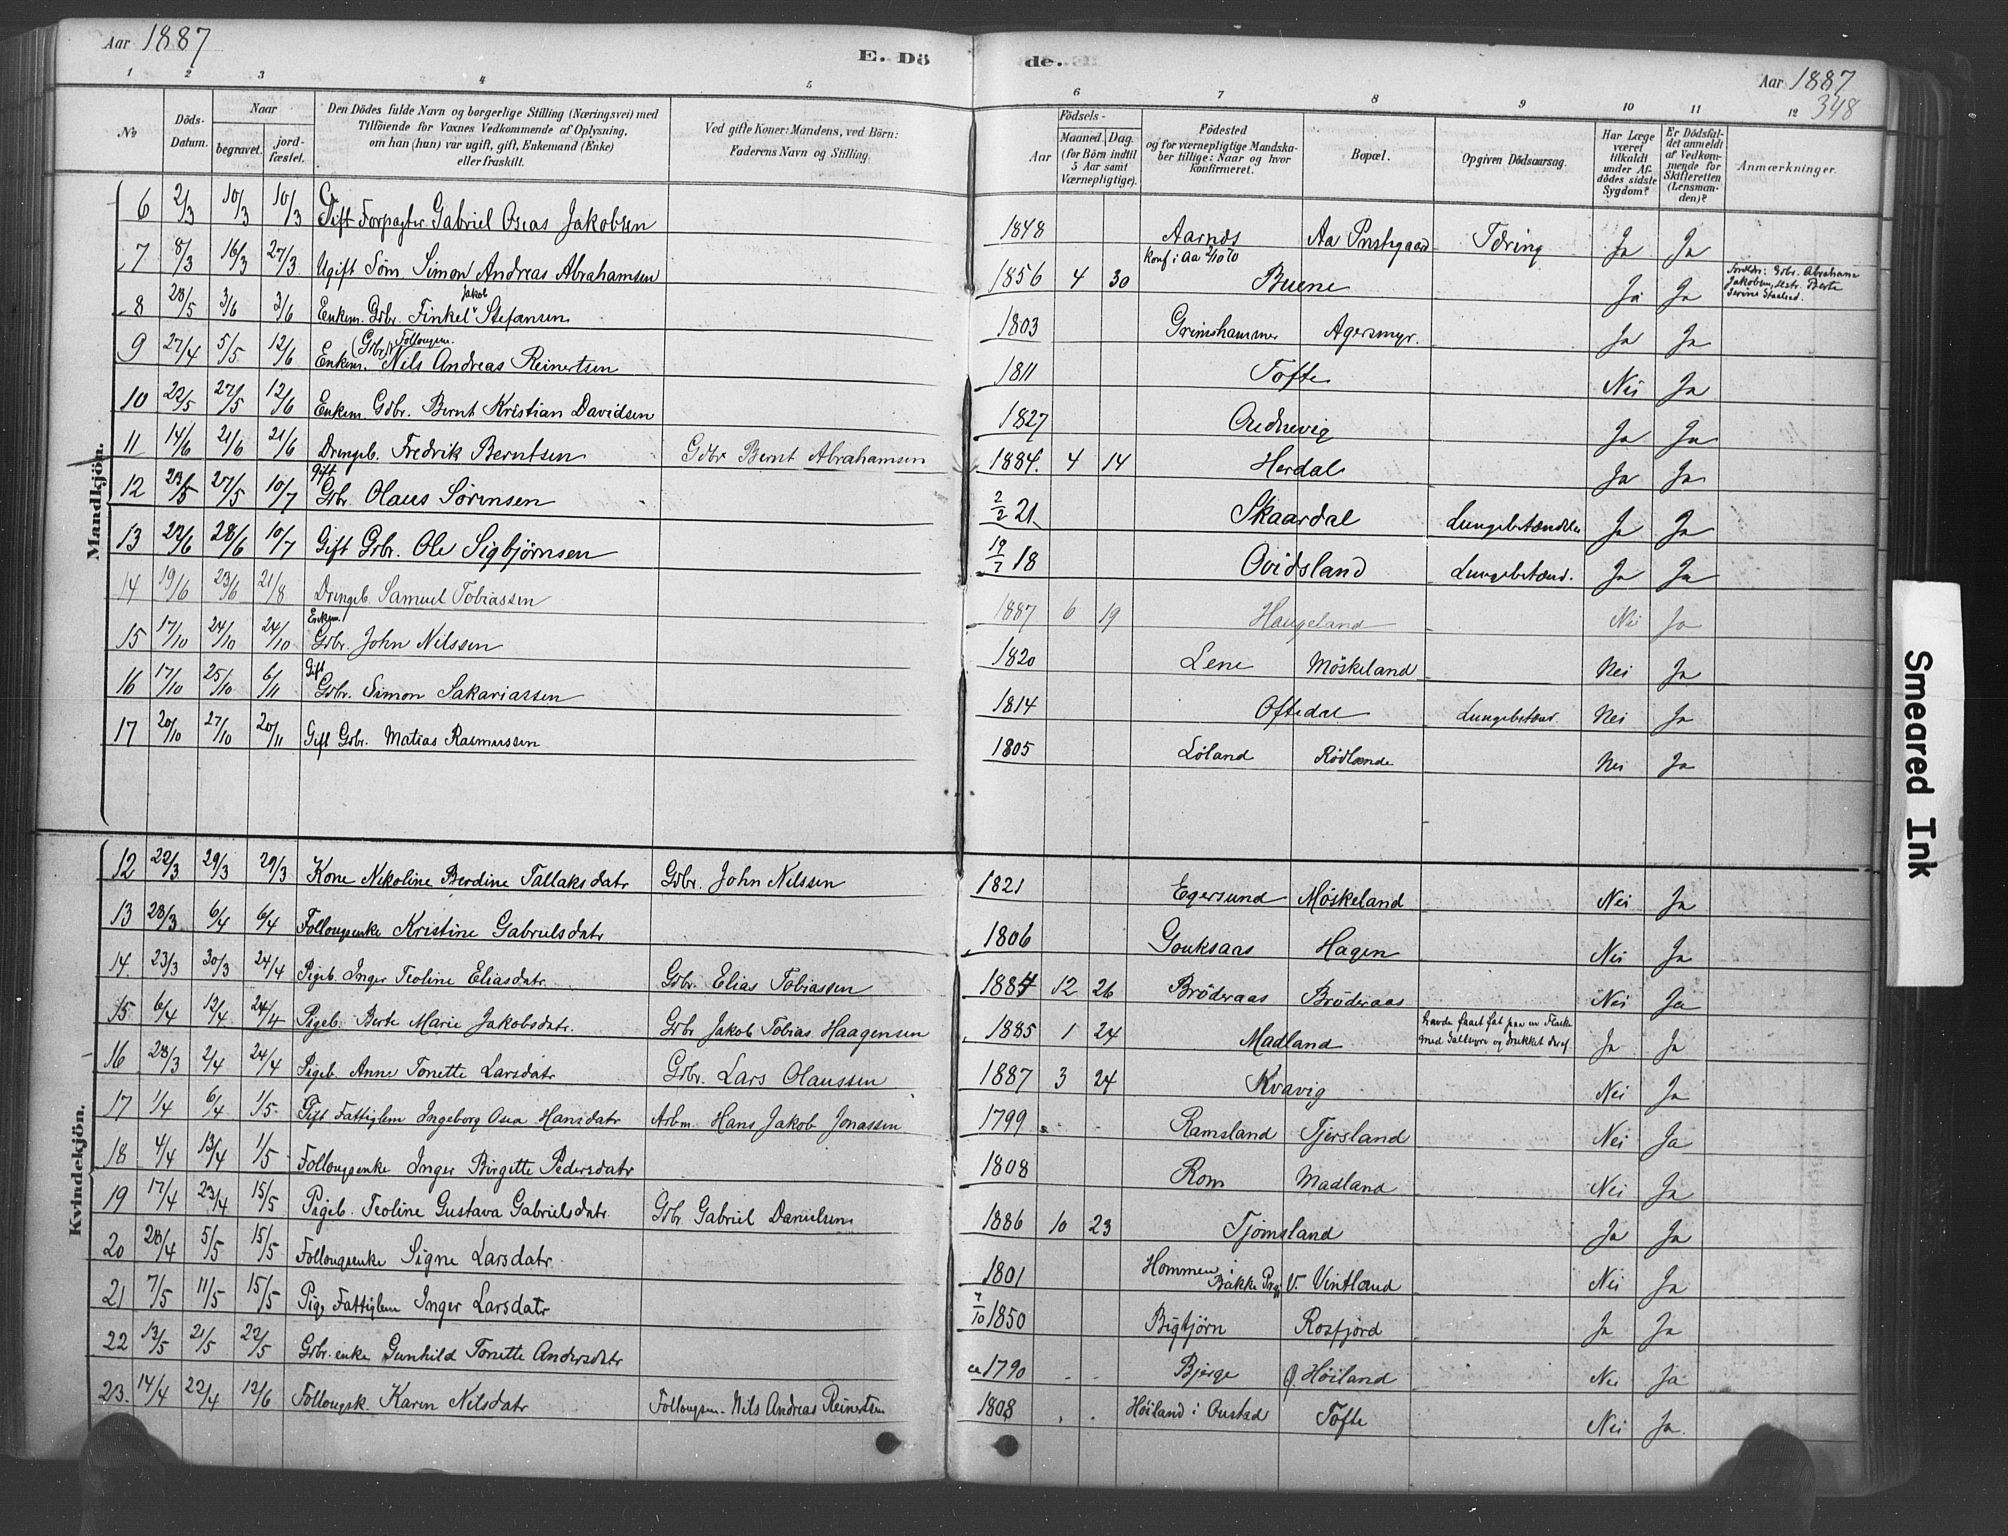 Aar 1887
E. Dö de.
Aar 1887
348
1 2 3 4 5 6 7 8 9 10 11 12
No
Döds-Datum.
Naar
begravet.
jordfæstet.
Den Dödes fulde Navn og borgerlige Stilling (Næringsvei) med
Tilföiende for Voxnes Vedkommende af Oplysning,
om han (hun) var ugift, gift, Enkemand (Enke)
eller fraskilt.
Ved gifte Koner: Mandens, ved Börn:
Faderens Navn og Stilling.
Födsels-
Aar
Maaned. Dag.
(for Börn indtil
5 Aar samt
Værnepligtige).
Födested
og for værnepligtige Mandska-
ber tillige: Naar og hvor
konfirmeret.
Bopæl.
Opgiven Dödsaarsag.
Har Læge
været
tilkaldt
under Af-
dödes sidste
Sygdom?
Er Dödsfal-
det anmeldt
af Vedkom-
mende for
Skifteretten
(Lensman-
den)?
Anmærkninger.
Mandkjön.
6 2/3 10/3 10/3 Gift Forpagter Gabriel Oseas Jakobsen 1848 Aarnes Aa Tæring Ja Ja
7 8/3 16/3 27/3 Ugift Søm. Simon Andreas Abrahamsen 1856 4 30 Konf i Aa Buene Ja Ja
8 28/5 3/6 3/6 Enkem. Gdbr. Finkel Jakob Stefansen 1803 Grimshammer Agersmyr. Ja Ja
9 27/4 5/5 12/6 Enkem. Nils Andreas Reinertsen 1811 Tofte Nei Ja
10 22/5 27/5 12/6 Enkem. Gdbr. Bernt Kristian Davidsen 1827 Ja Ja
11 14/6 21/6 21/6 Drengeb. Fredrik Berntsen Gdbr Bernt Abrahamsen 1884. 4 14 Herdal Ja Ja
12 23/5 27/5 10/7 Gift Gdbr. Olaus Sørensen 2/2 21 Skaardal Ja Ja
13 22/6 28/6 10/7 Gift Gdbr. Ole Sigbjørnsen 19/7 18 Qvidsland Lungebetænd. Ja Ja
14 19/6 23/6 21/8 Drengeb. Samuel Tobiassen 1887 6 19 Haugeland Nei Ja
15 17/10 24/10 24/10 Enkem. Gdbr. John Nilssen 1820 Lene Möskeland Nei Ja
16 17/10 25/10 6/11 Gift Gdbr. Simon Sakariassen 1814 Oftedal Lungebetænd. Nei Ja
17 20/10 27/10 20/11 Gift Gdbr. Matias Rasmussen 1805 Løland Rødlande Nei Ja
Kvindekjön.
12 22/3 29/3 29/3 Kone Nikoline Berdine Tallaksdatr Gdbr. John Nilssen 1821 Egersund Möskeland Nei Ja
13 28/3 6/4 6/4 Føllougsenke Kristine Gabrielsdatr 1806 Gouksaas Hagen Nei Ja
14. 23/3 30/3 24/4 Pigeb. Inger Teoline Eliasdatr. Gdbr. Elias Tobiassen 1884 12 26 Brøderaas Brøderaas Nei Ja
15 6/4 12/4 24/4 Pigeb. Berte Marie Jakobsdatr. Gdbr Jakob Tobias Haagensen 1885 1 24 Madland havde faaet fat paa en Flaske
med Saltsyre og drukket deraf Ja Ja
16 28/3 2/4 24/4 Pigeb. Anne Tonette Larsdatr Gdbr. Lars Olaussen 1887 3 24 Kvavig Nei Ja
17 1/4 6/4 1/5 Gift Fattiglem Ingeborg Osea Hansdatr Arbm. Hans Jakob Jonassen 1799 Ramsland Tjersland Nei Ja
18 4/4 13/4 1/5 Føllougsenke Inger Birgitte Pedersdatr 1808 Rom Madland Nei Ja
19 17/4 23/4 15/5 Pigeb. Teoline Gustava Gabrielsdatr. Gdbr. Gabriel Danielsen 1886 10 23 Tjømsland Ja Ja
20 28/4 5/5 15/5 Føllougsenke Signe Larsdatr. 1801 Hommen i Bakke V. Vintland Nei Ja
21 7/5 11/5 15/5 Pige Fattiglem Inger Larsdatr 7/10 1850 Bigtjørn Rosfjord Ja Ja
22 13/5 21/5 22/5 Gdbr.enke Gunhild Tonette Andersdatr ca 1790 Bjerge Ø. Høiland Nei Ja
23. 14/4 22/4 12/6 Føllougsk. Karen Nilsdatr Føllougsm. Nils Andreas Reinertsen 1808 Høiland i Oustad Tofte Nei Ja.
Smeared Ink